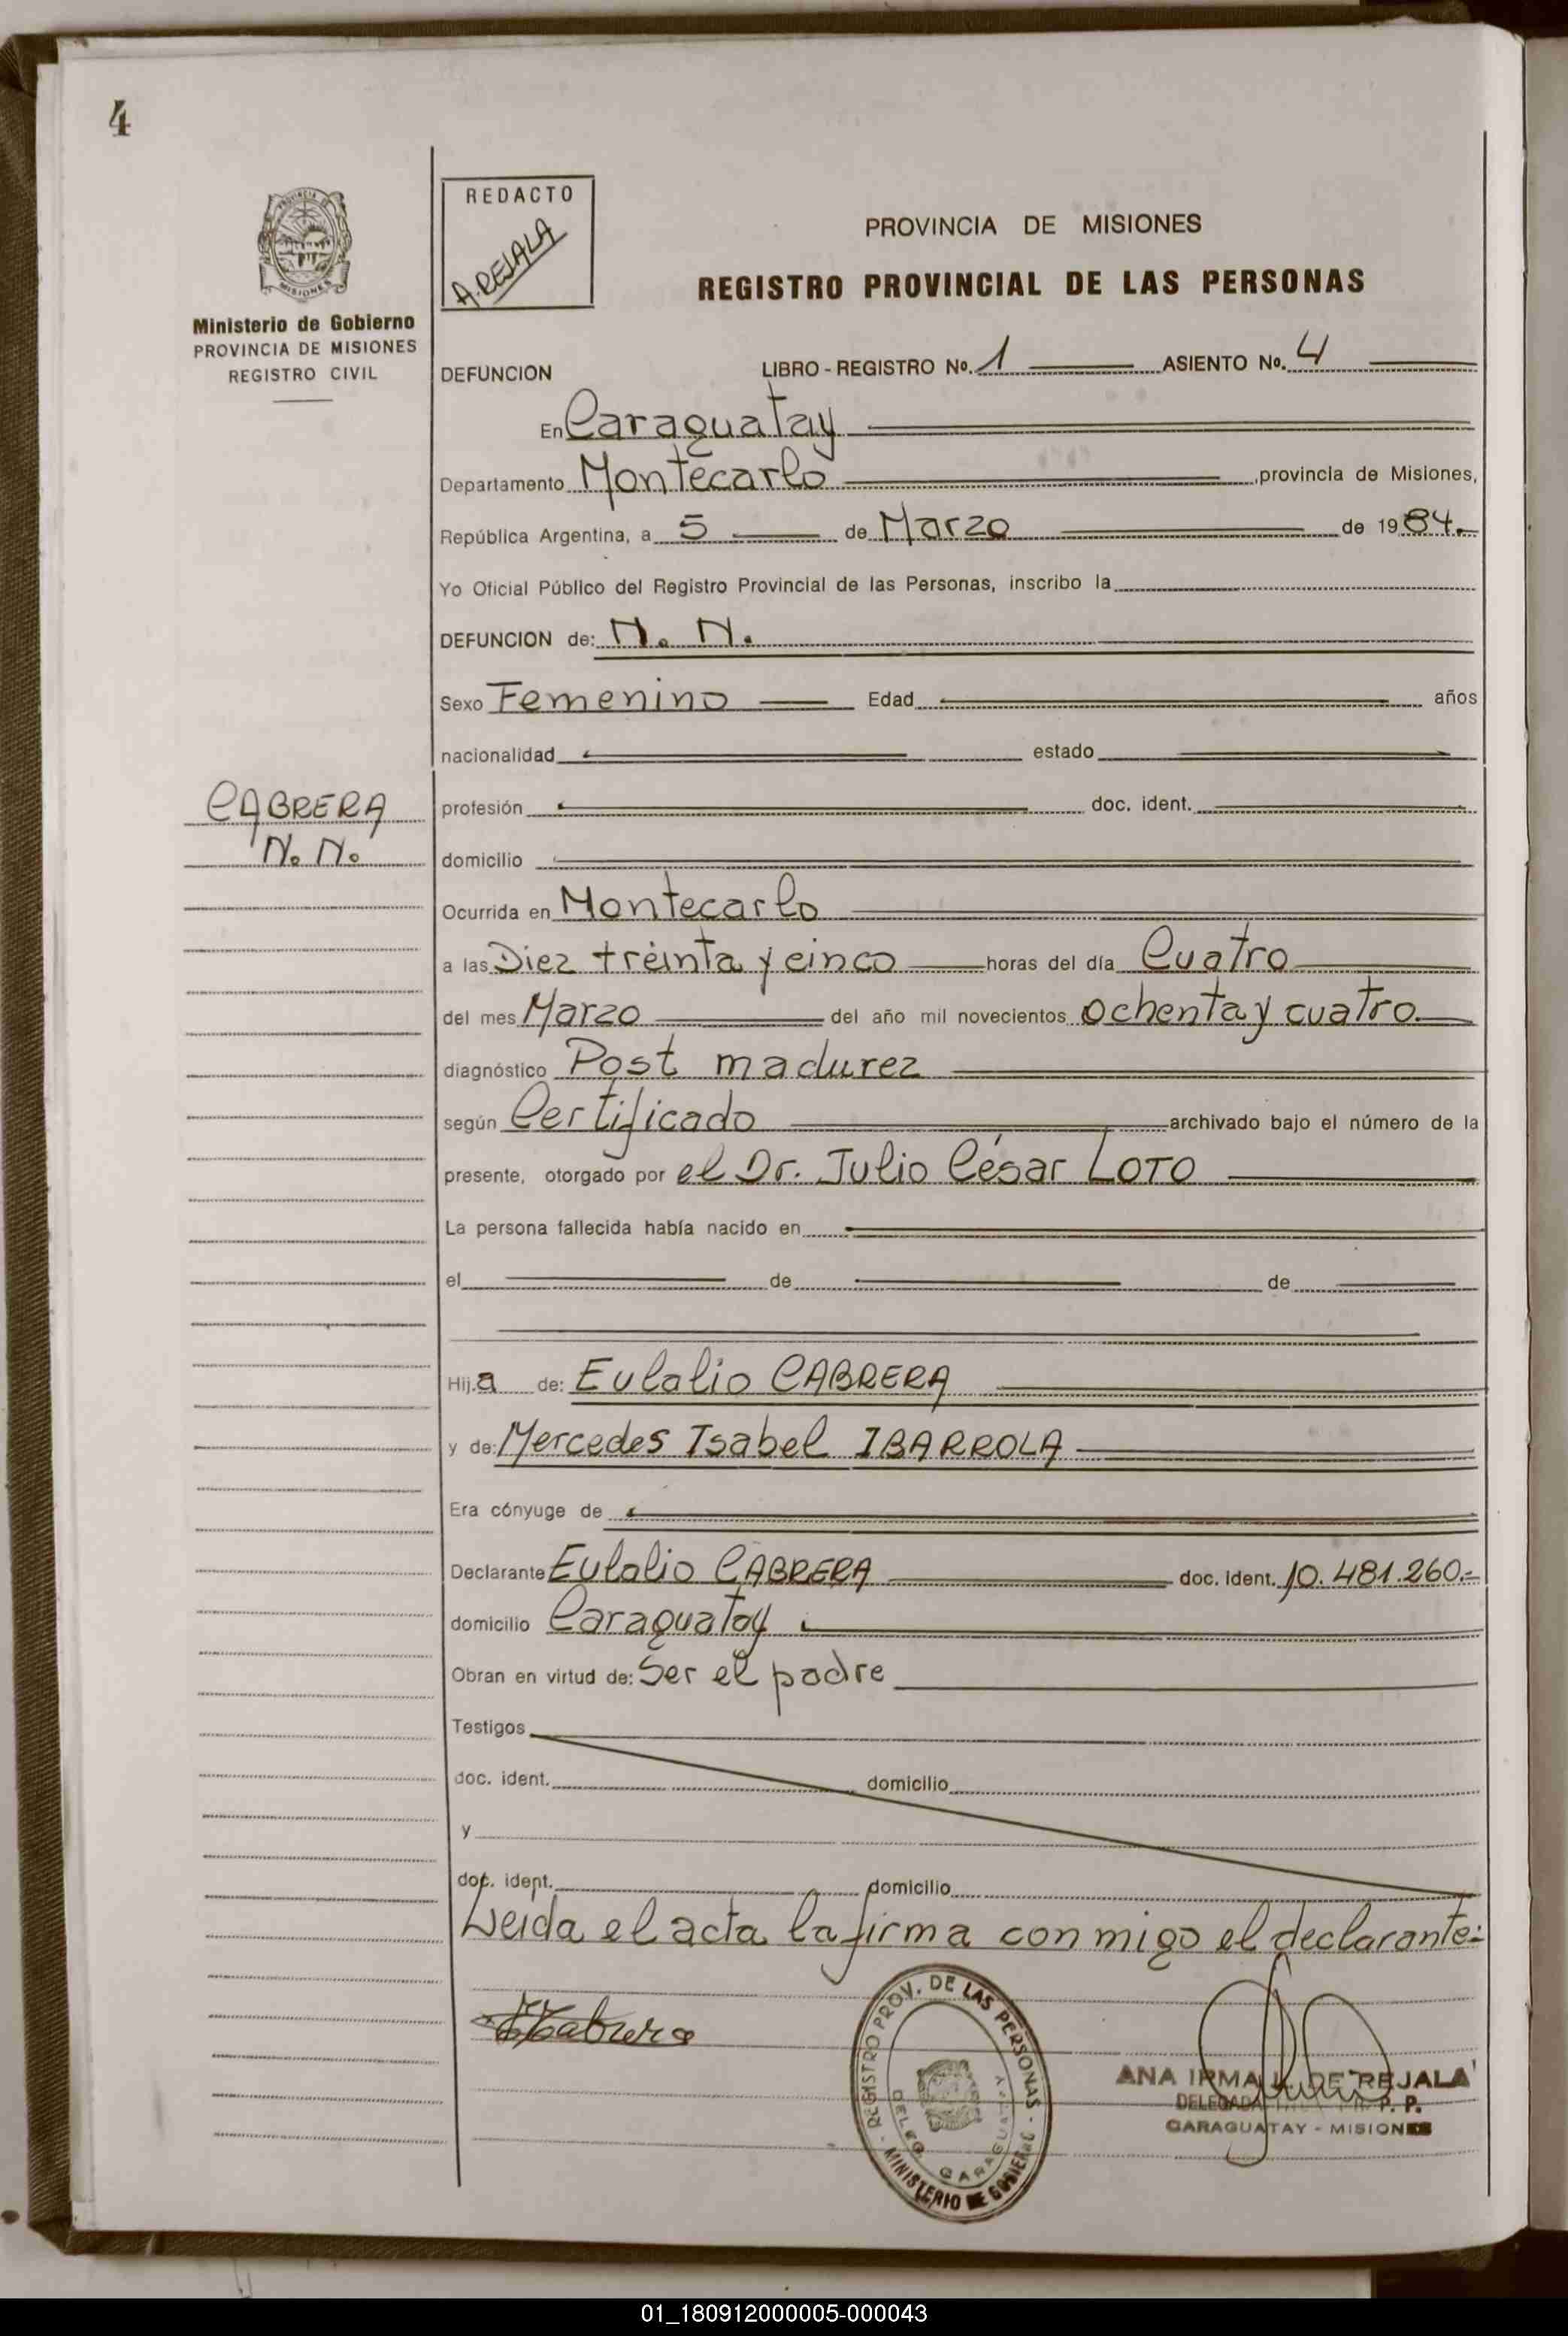 4
PROVINCIA DE
MISIONES
Ministerio de Gobierno
PROVINCIA DE MISIONES
REGISTRO CIVIL
REDACTO
A. REJALA
PROVINCIA DE MISIONES
REGISTRO PROVINCIAL DE LAS PERSONAS
DEFUNCION LIBRO - REGISTRO No. 1 ASIENTO No. 4
En Caraguatay
Departamento Montecarlo, provincia de Misiones,
República Argentina, a 5 de Marzo de 1984.
Yo Oficial Público del Registro Provincial de las Personas, inscribo la
DEFUNCION de: N. N.
Sexo Femenino Edad años
nacionalidad estado
CABRERA
N. N.
profesión doc. ident.
domicilio
Ocurrida en Montecarlo
a las Diez treinta y cinco horas del día Cuatro
del mes Marzo del año mil novecientos ochenta y cuatro.
diagnóstico Post madurez
según Certificado archivado bajo el número de la
presente, otorgado por el Dr. Julio César LOTO
La persona fallecida había nacido en
el de de
Hij.a de: Eulalio CABRERA
y de: Mercedes Isabel IBARROLA
Era cónyuge de
Declarante Eulalio CABRERA doc. ident. 10.481.260.-
domicilio Caraguatay
Obran en virtud de: Ser el padre
Testigos
doc. ident. domicilio
y
doc. ident. domicilio
Leida el acta la firma conmigo el declarante:
Cabrera
REGISTRO PROV. DE LAS PERSONAS
DELEG. CARAGUATAY
MINISTERIO DE GOBIERNO
ANA IRMA DE REJALA
DELEGADA P. P.
CARAGUATAY - MISIONES
01_180912000005-000043